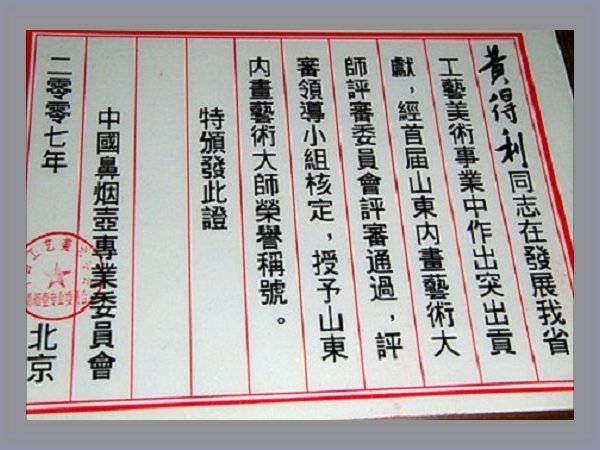 黄得利同志在發展我省
工藝美術事業中作出突出貢
獻，經首届山東内畫藝術大
師評審委員會評審通過，評
審領導小組核定，授予山東
内畫藝術大師榮譽稱號。
特頒發此證
中國鼻烟壺專業委員會
二零零七年
北京